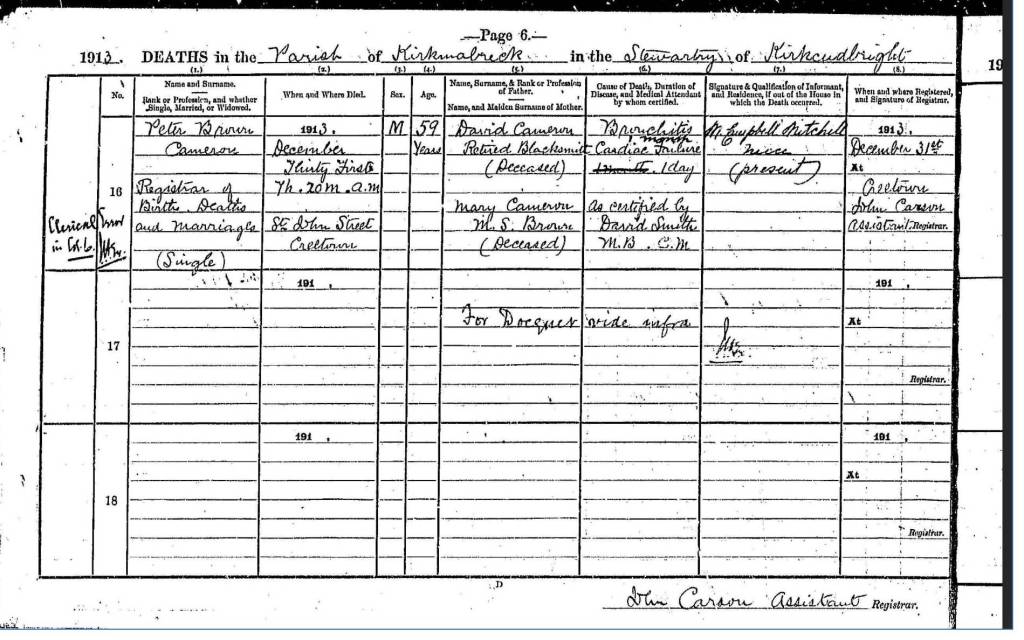 —Page 6.—
1913. DEATHS in the Parish of Kirkmabreck in the Stewartry of Kirkcudbright
(1.) (2.) (3.) (4.) (5.) (6.) (7.) (8.)
No.
Name and Surname.
Rank or Profession, and whether Single, Married, or Widowed.
When and Where Died.
Sex.
Age.
Name, Surname, & Rank or Profession of Father.
Name, and Maiden Surname of Mother.
Cause of Death, Duration of Disease, and Medical Attendant by whom certified.
Signature & Qualification of Informant, and Residence, if out of the House in which the Death occurred.
When and where Registered, and Signature of Registrar.
Clerical Error
in Col. 6.
16
Peter Brown
Cameron
Registrar of
Births Deaths
and Marriages
(Single)
1913.
December
Thirty First
7h. 20m. a.m
St. John Street
Creetown
M
59
Years
David Cameron
Retired Blacksmith
(Deceased)
Mary Cameron
M. S. Brown
(Deceased)
Bronchitis
1 month
Cardiac Failure
1 day
as certified by
David Smith
M.B. C.M
M. Campbell Mitchell
niece
(present)
1913.
December 31st
At
Creetown
John Carson
Assistant Registrar.
17
191 .
For Docquet vide infra
191 .
At
Registrar.
18
191 .
191 .
At
Registrar.
D
John Carson Assistant Registrar.
19